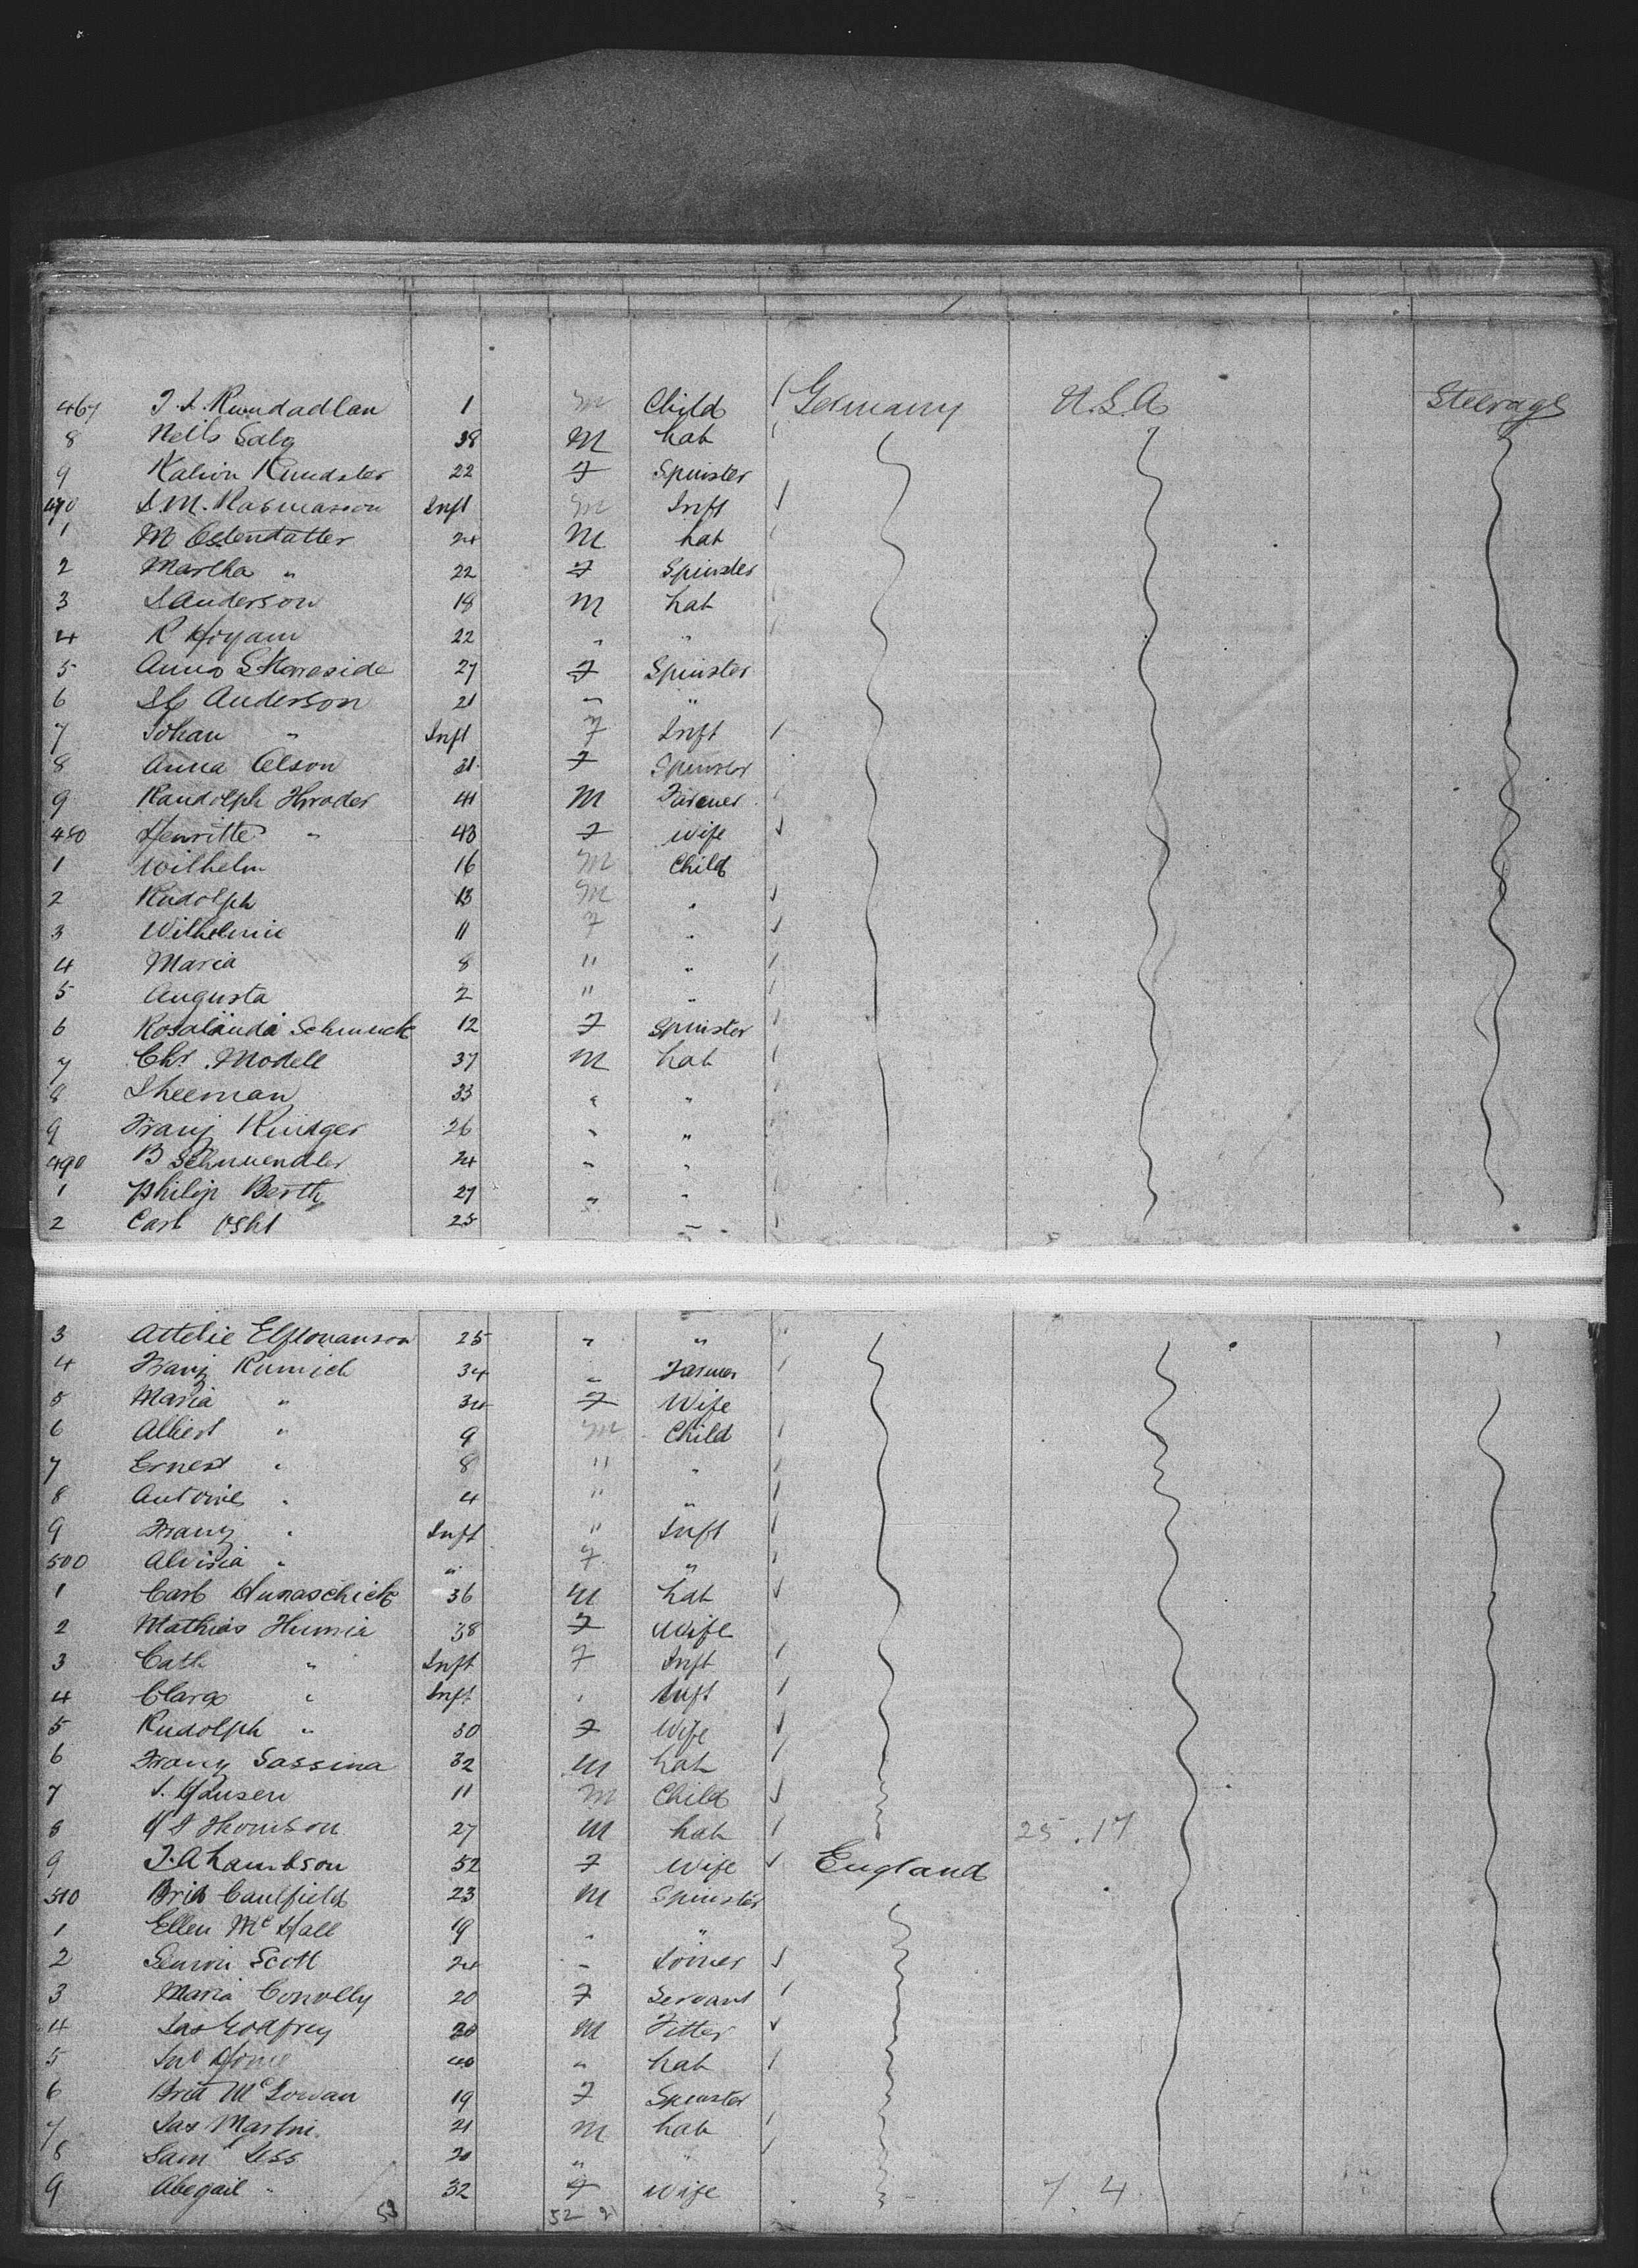 467 J. A. Rundadlan 1 M Child Germany U.S.A Steerage
8 Nells Salg 38 M Lab
9 Katrin Kundster 22 F Spinster
470 A. M. Rasmasson Inft M Inft
1 M Ostendatter 24 M Lab
2 Martha " 22 F Spinster
3 L Anderson 18 M Lab
4 R 22 " "
5 Anna 27 F Spinster
6 Anderson 21 " "
7 Johan " Inft F Inft
8 Anna Olson 21 F Spinster
9 Randolph Hroder 41 M Farmer
480 Henritte " 43 F Wife
1 Wilhelm 16 M Child
2 Rudolph 13 M "
3 Wilhelmie 11 F "
4 Maria 8 " "
5 Augusta 2 " "
6 Rosalanda Schmuck 12 F Spinster
7 Chr. Modell 37 M Lab
8 Sheeman 33 " "
9 Franz Rindger 26 " "
490 B Schmuendler 24 " "
1 Philip Berth 27 " "
2 Carl 25 " "
3 25 " "
4 Franz Rumich 34 " Farmer
5 Maria " 34 F Wife
6 Albert " 9 M Child
7 Ernest " 8 " "
8 Antoine " 4 " "
9 Franz " Inft " Inft
500 Aloisia " " F "
1 Carl Hunaschick 36 M Lab
2 Mathias Humia 38 F Wife
3 Cath " Inft F Inft
4 Clara " Inft " Inft
5 Rudolph " 30 F Wife
6 Franz Sassina 32 M Lab
7 J. Hansen 11 M Child
8 Thomson 27 M Lab 25.17
9 J. A Lambson 52 F Wife England
510 Brid Caulfield 23 M Spinster
1 Ellen McHall 19 " "
2 Scott 24 " Joiner
3 Maria Conolly 20 F Servant
4 Jas Godfrey 20 M Fitter
5 Jno 40 " Lab
6 Brid McGowan 19 F Spinster
7 Jas Martin 21 M Lab
8 Saml Less 20 " "
9 Abegail " 32 F Wife 7.4
53 52